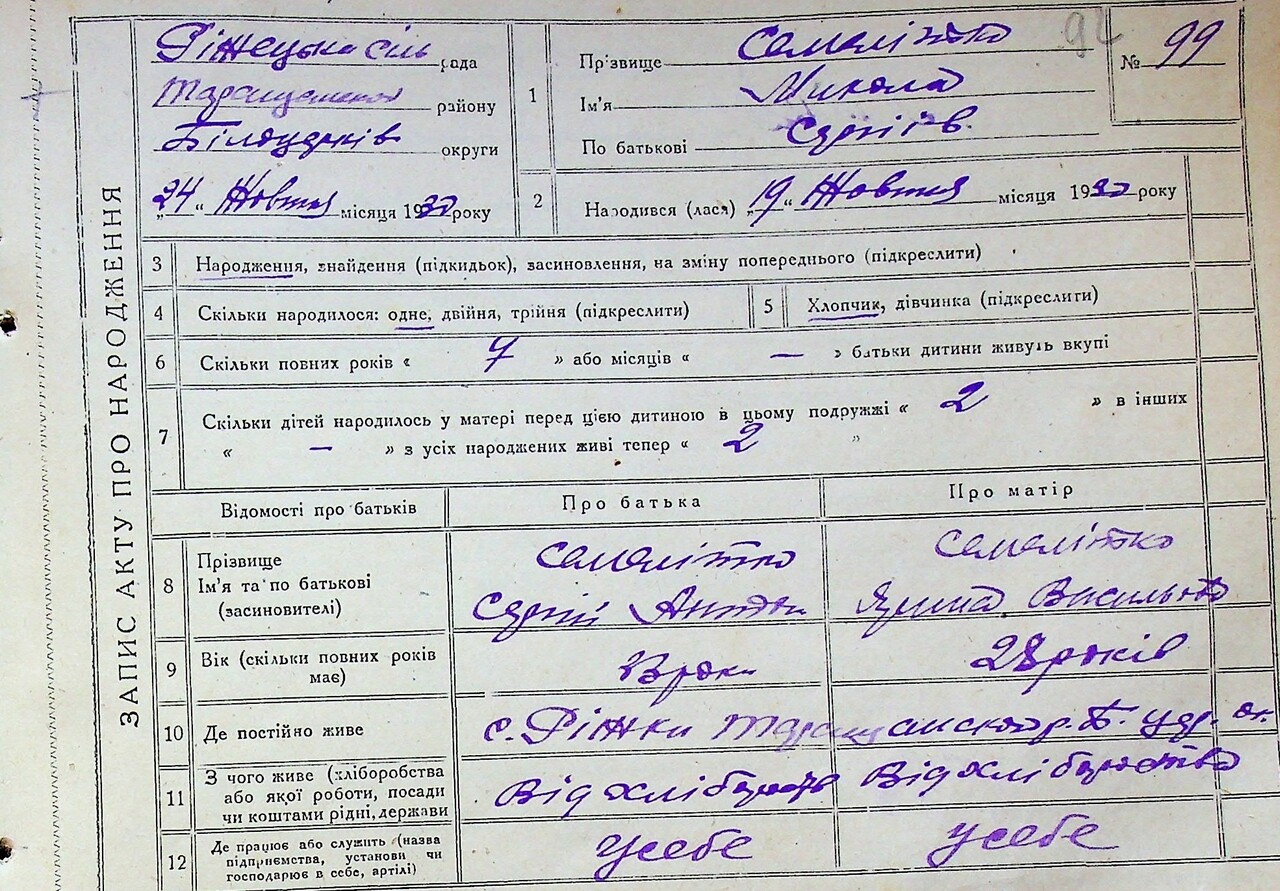 92
№ 99
ЗАПИС АКТУ ПРО НАРОДЖЕННЯ
Ріжецька сіль рада
району
Білоцерків округи
„24“ Жовтня місяця 1930 року
1
Прізвище Самалітко
Ім'я Микола
По батькові Сергіїв.
2
Народився (лася) „19“ Жовтня місяця 1930 року
3 Народження, знайдення (підкидьок), засиновлення, на зміну попереднього (підкреслити)
4 Скільки народилося: одне, двійня, трійня (підкреслити)
5 Хлопчик, дівчинка (підкреслити)
6 Скільки повних років « 7 » або місяців « — » батьки дитини живуть вкупі
7 Скільки дітей народилось у матері перед цією дитиною в цьому подружжі « 2 » в інших
« — » з усіх народжених живі тепер « 2 »
Відомості про батьків Про батька Про матір
8 Прізвище
Ім'я та по батькові
(засиновителі)
Самалітко Самалітко
Сергій Антон Ярина Васильовна
9 Вік (скільки повних років
має)
роки 28 років
10 Де постійно живе с. Ріжки
11 З чого живе (хліборобства
або якої роботи, посади
чи коштами рідні, держави
Від хліборобства Від хліборобства
12 Де працює або служить (назва
підприємства, установи чи
господарює в себе, артілі)
у себе у себе